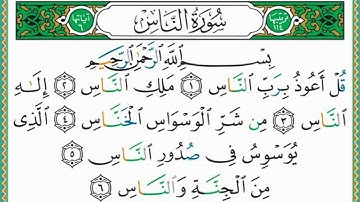 ترتيبها ١١٤ سُورَةُ النَّاسِ آياتها ٦
بِسْمِ اللَّهِ الرَّحْمَٰنِ الرَّحِيمِ
قُلْ أَعُوذُ بِرَبِّ ٱلنَّاسِ ۝١ مَلِكِ ٱلنَّاسِ ۝٢ إِلَٰهِ
ٱلنَّاسِ ۝٣ مِن شَرِّ ٱلْوَسْوَاسِ ٱلْخَنَّاسِ ۝٤ ٱلَّذِى
يُوَسْوِسُ فِى صُدُورِ ٱلنَّاسِ ۝٥
مِنَ ٱلْجِنَّةِ وَٱلنَّاسِ ۝٦